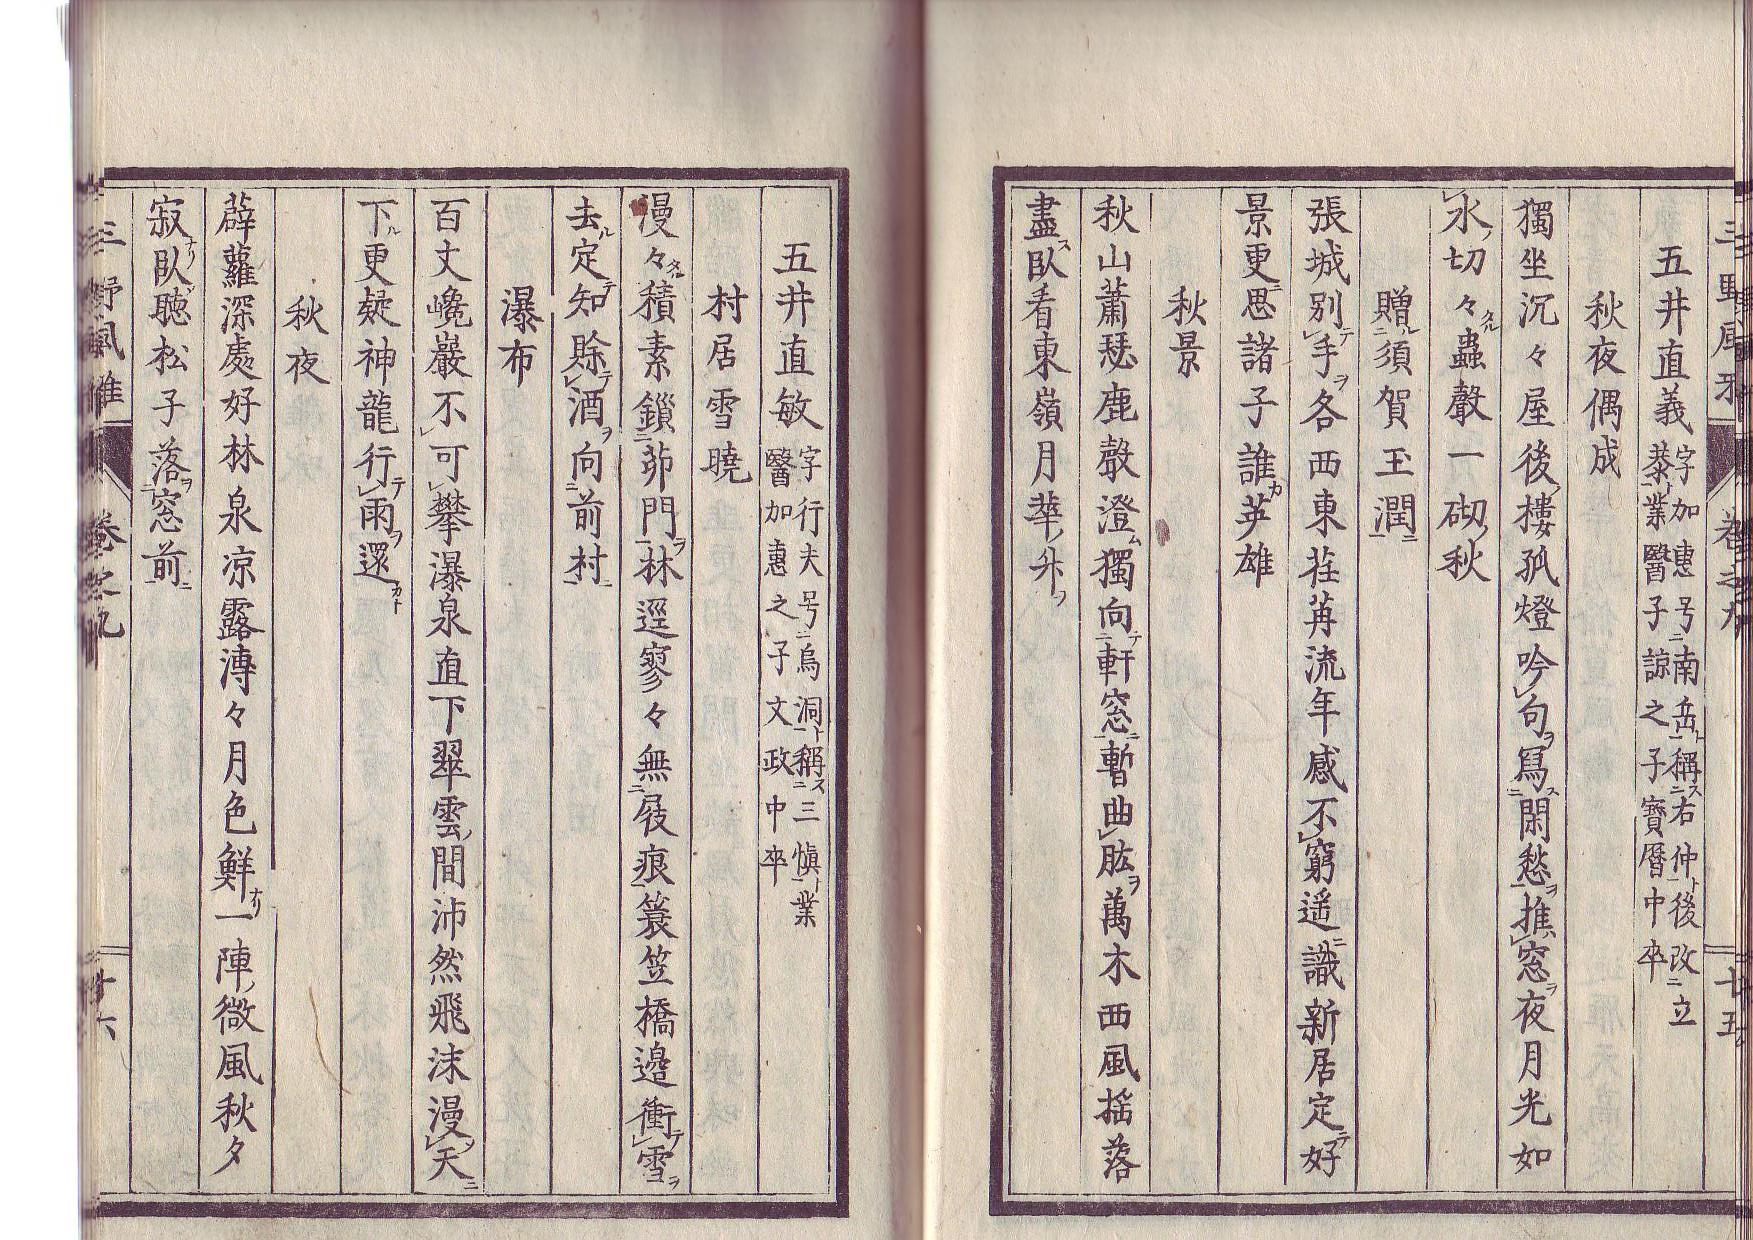 三野風雅 卷之九 七五
五井直義 字加惠号南岳稱右仲後改立
恭業醫子諒之子寶曆中卒
秋夜偶成
獨坐沉々屋後樓孤燈吟句寫閑愁推窓夜月光如
水切々蟲聲一砌秋
贈須賀玉潤
張城別手各西東荏苒流年感不窮遥識新居定好
景更思諸子誰英雄
秋景
秋山蕭瑟鹿聲澄獨向軒窓暫曲肱萬木西風揺落
盡臥看東嶺月華升
五井直敏 字行夫号烏洞稱三愼業
醫加惠之子文政中卒
村居雪曉
漫々積素鎖茆門林逕寥々無屐痕簑笠橋邉衝雪
去定知賖酒向前村
瀑布
百丈巉巖不可攀瀑泉直下翠雲間沛然飛沫漫天
下更疑神龍行雨還
秋夜
薜蘿深處好林泉凉露漙々月色鮮一陣微風秋夕
寂臥聴松子落窓前
三野風雅 卷之九 十六